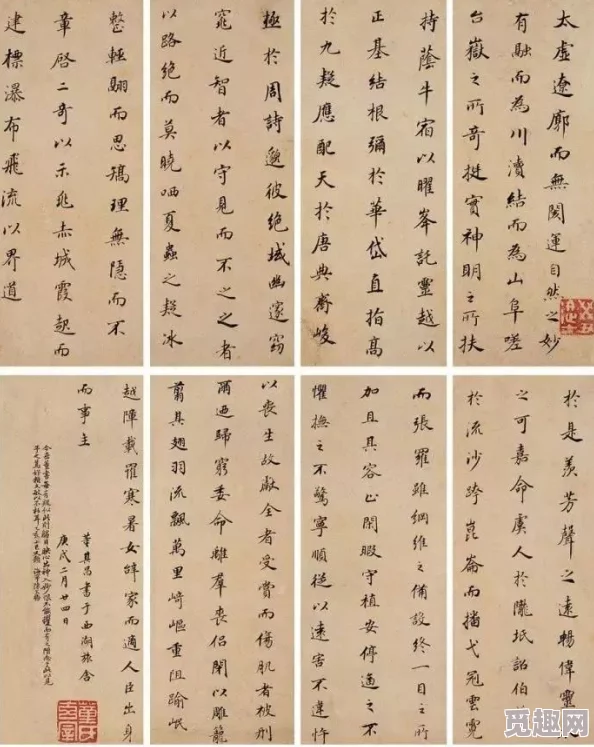 太虛遼廓而無閡運自然之妙
有融而為川瀆結而為山阜嗟
台嶽之所奇挺實神明之所扶
持蔭牛宿以曜峯託靈越以
正基結根彌於華岱直指高
於九疑應配天於唐典齊峻
極於周詩邈彼絕域幽邃窈
窕近智者以守見而不之之者
以路絕而莫曉哂夏蟲之疑冰
整輕翮而思矯理無隱而不
章啓二奇以示兆赤城霞起而
建標瀑布飛流以界道
於是羨芳聲之遠暢偉靈
之可嘉命虞人於隴坻詔伯
於流沙跨崑崙而播弋冠雲霓
而張羅雖綱維之備設終一目之所
加且其容止閑暇守植安停逼之不
懼撫之不驚寧順從以遠害不違忤
以喪生故獻全者受賞而傷肌者被刑
爾迺歸窮委命離羣喪侶閉以雕籠
翦其翅羽流飄萬里崎嶇重阻踰岷
越障載罹寒暑女辭家而適人臣出身
而事主
董其昌書于西湖旅舍
庚戌二月廿四日
觅趣网